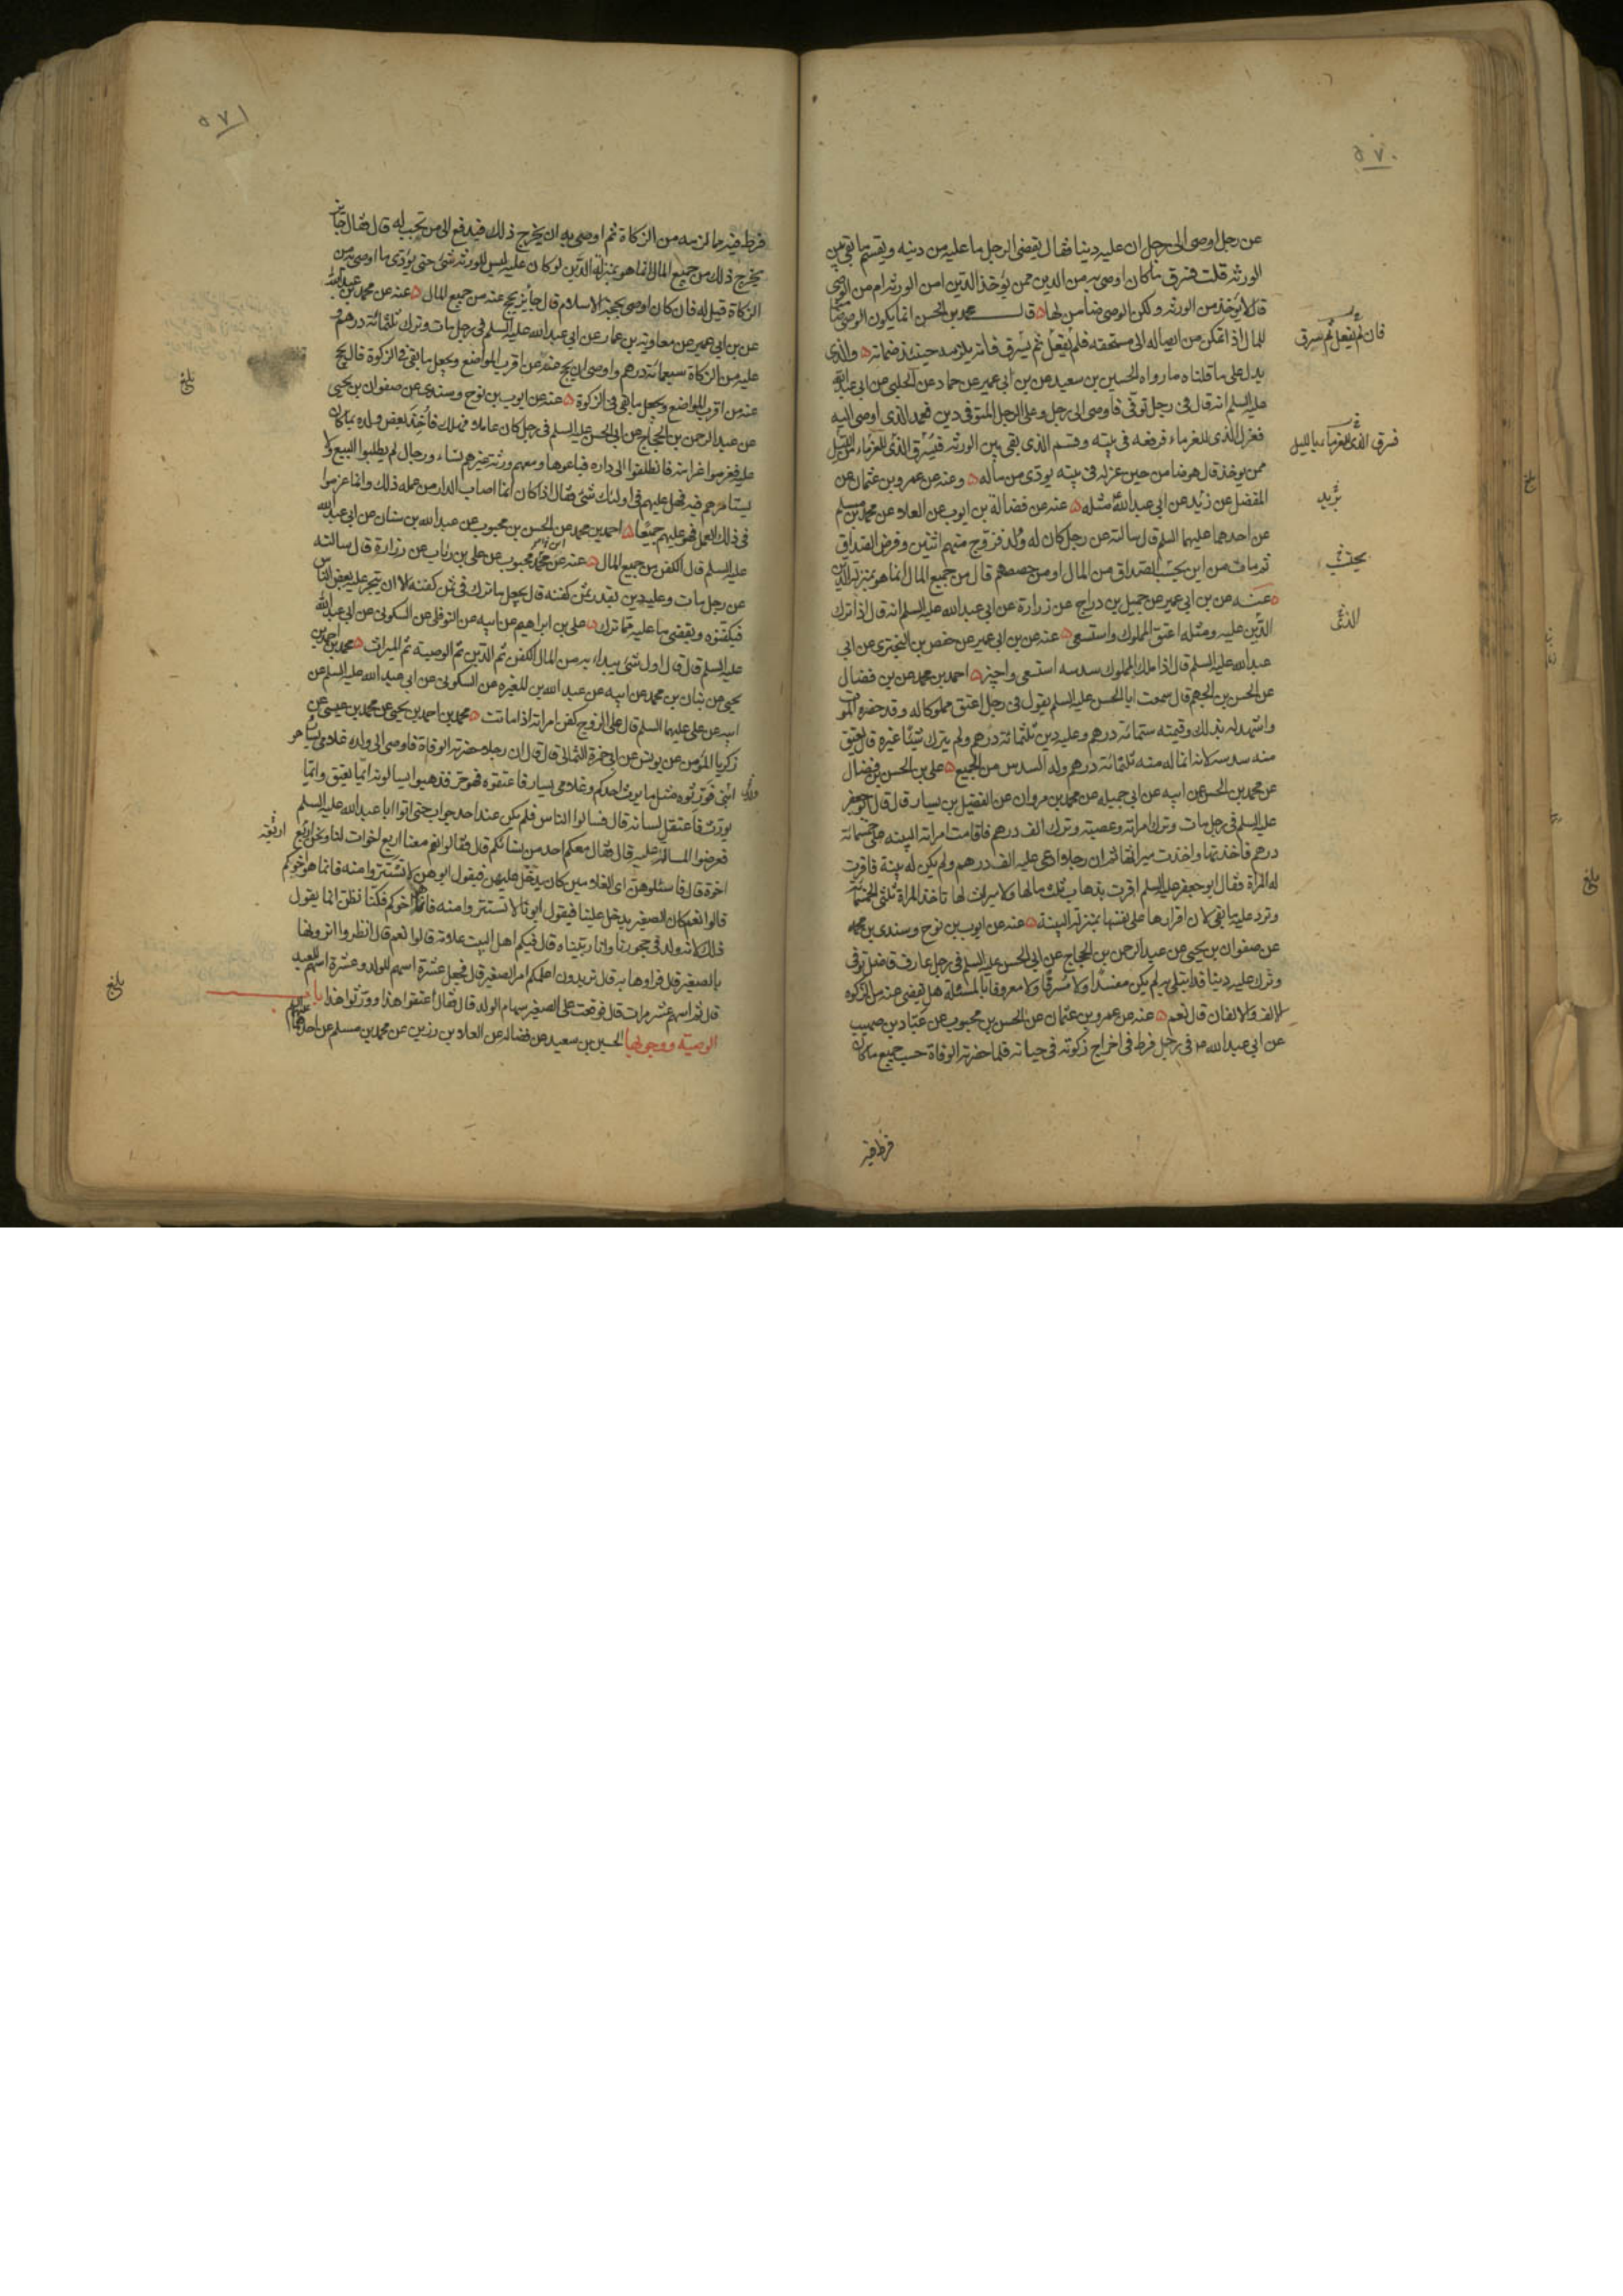 ٥٧٠
عن رجل اوصى الى رجل ان عليه دينا فقال يقضى الرجل ما عليه من دينه ويقسم ما بقى بين
الورثه قلت فسرق ما كان اوصى به من الدين ممن يؤخذ الدين امن الورثه ام من الوصى
قال لا يؤخذ من الورثه ولكن الوصى ضامن لها قال محمد بن الحسن انما يكون الوصى ضامنا
للمال اذا تمكن من ايصاله الى مستحقه فلم يفعل ثم يسرق فانه يلزمه حينئذ ضمانه والذى
يدل على ما قلناه ما رواه الحسين بن سعيد عن بن ابى عمير عن حماد عن الحلبى عن ابى عبدالله
عليه السلم انه قال فى رجل توفى فاوصى الى رجل وعلى الرجل المتوفى دين فعمد الذى اوصى اليه
فعزل الذى للغرماء فرفعه فى بيته وقسم الذى بقى بين الورثه فيسرق الذى للغرماء من الليل
ممن يوخذ قال هو ضامن حين عزله فى بيته يودى من ماله وعنه عن عمرو بن عثمان عن
المفضل عن زيد عن ابى عبد الله مثله عنه عن فضالة بن ايوب عن العلا عن محمد بن مسلم
عن احدهما عليهما السلم قال سالته عن رجل كان له ولد فزوج منهم اثنين وفرض الصداق
ثم مات من اين يحسب الصداق من المال او من حصصهم قال من جميع المال انما هو بمنزلة الدين
عنه عن بن ابى عمير عن جميل بن دراج عن زرارة عن ابى عبد الله عليه السلم انه قال اذا ترك
الدين عليه ومثله اعتق المملوك واستسعى عنه عن بن ابى عمير عن حفص بن البخترى عن ابى
عبد الله عليه السلم قال اذا ملك المملوك سدسه استسعى واجيز احمد بن محمد عن بن فضال
عن الحسن بن الجهم قال سمعت ابا الحسن عليه السلم يقول فى رجل اعتق مملوكا له وقد حضره الموت
واشهد له بذلك وقيمته ستمائه درهم وعليه دين ثلثمائه درهم ولم يترك شيئا غيره قال يعتق
منه سدسه لانه انما له منه ثلثمائه درهم وله السدس من الجميع على بن الحسن بن فضال
عن محمد بن الحسن عن ابيه عن ابى جميله عن محمد بن مروان عن الفضيل بن يسار قال قال ابو جعفر
عليه السلم فى رجل مات وترك امراته وعصبته وترك الف درهم فاقامت امراته البينه على خمسمائه
درهم فاخذتها واخذت ميراثها ثم ان رجلا ادعى عليه الف درهم ولم يكن له بينة فاقرت
له المراة فقال ابو جعفر عليه السلم اقرت بذهاب ثلث مالها ولا ميراث لها تاخذ المراة ثلثى الخمسمائه
وترد عليه ما بقى لان اقرارها على نفسها بمنزلة البينة عنه عن ايوب بن نوح وسندى بن محمد
عن صفوان بن يحيى عن عبد الرحمن بن الحجاج عن ابى الحسن عليه السلم فى رجل عارف فاضل توفى
وترك عليه دينا قد ابتلى به لم يكن مفسدا ولا مسرفا ولا معروفا بالمسئلة هل يقضى عنه من الزكوة
الالف والالفان قال نعم عنه عن عمرو بن عثمان عن الحسن بن محبوب عن عباد بن صهيب
عن ابى عبد الله ع فى رجل فرط فى اخراج زكوته فى حياته فلما حضرته الوفاة حسب جميع ما كان
فرط فيه
فان لم يفعل ثم سرق
فسرق الذى للغرماء بالليل
يزيد
يحسب
الذى
بلغ
٥٧١
فرط فيه مما لزمه من الزكاة ثم اوصى به ان يخرج ذلك فيدفع الى من تجب له قال فقال جايز
يخرج ذلك من جميع المال انما هو بمنزلة الدين لو كان عليه ليس للورثه شئ حتى يؤدى ما اوصى به من
الزكاة قيل له فان كان اوصى بحجة الاسلام قال جائز يحج عنه من جميع المال عنه عن محمد بن عبد الله
عن بن ابى عمير عن معاوية بن عمار عن ابى عبد الله عليه السلم فى رجل مات وترك ثلثمائة درهم و
عليه من الزكاة سبعمائه درهم واوصى ان يحج عنه عن اقرب المواضع ويجعل ما بقى فى الزكوة قال يحج
عنه من اقرب المواضع ويجعل ما بقى فى الزكوة عنه عن ايوب بن نوح وسندى عن صفوان بن يحيى
عن عبد الرحمن بن الحجاج عن ابى الحسن عليه السلم فى رجل كان عاملا فهلك فاخذ بعض ولده بما كان
عليه فغرموا غرامته فانطلقوا الى داره فباعوها ومعهم ورثة غيرهم نساء ورجال لم يطلبوا البيع ولا
يستامرهم فيه فهل عليهم فى اولئك شئ فقال اذا كان انما اصاب الدار من عمله ذلك وانما غرموا
فى ذلك العمل فهو عليهم جميعا احمد بن محمد عن الحسن بن محبوب عن عبد الله بن سنان عن ابى عبد الله
عليه السلم قال الكفن من جميع المال عنه عن محبوب عن على بن رئاب عن زرارة قال سالته
عن رجل مات وعليه دين بقدر ثمن كفنه قال يجعل ما ترك فى ثمن كفنه الا ان يتجر عليه بعض الناس
فيكفنوه ويقضى ما عليه مما ترك على بن ابراهيم عن ابيه عن النوفلى عن السكونى عن ابى عبد الله
عليه السلم قال قال اول شئ يبداء به من المال الكفن ثم الدين ثم الوصية ثم الميراث محمد بن احمد بن
يحيى عن بنان بن محمد عن ابيه عن عبد الله بن المغيره عن السكونى عن ابى عبد الله عليه السلم عن
ابيه عن على عليهما السلم قال على الزوج كفن امراته اذا ماتت محمد بن احمد بن يحيى عن محمد بن عيسى عن
زكريا المؤمن عن يونس عن ابى حمزة الثمالى قال قال ان رجلا حضرته الوفاة فاوصى الى ولده غلامى يسار هو
ابنى فورثوه مثل ما يرث احدكم وغلامى يسار فاعتقوه فهو حر فذهبوا يسالونه ايما يعتق وايما
يورث فاعتقل لسانه قال فسالوا الناس فلم يكن عند احد جواب حتى اتوا ابا عبد الله عليه السلم
فعرضوا المسالة عليه قال فقال معكم احد من نسائكم قال فقالوا نعم معنا اربع اخوات لنا ونحن اربع
اخوة قال فاسئلوهن اى الغلامين كان يدخل عليهن فيقول ابوهن لا تستتروا منه فانما هو اخوكم
قالوا نعم كان الصغير يدخل علينا فيقول ابونا لا تستتروا منه فانما هو اخوكم فكنا نظن انما يقول
ذلك لانه ولد فى حجورنا وانا ربيناه قال فيكم اهل البيت علامة قالوا نعم قال انظروا اترونها
بالصغير قال فراوها به قال تريدون اعلمكم امر الصغير قال فجعل عشرة اسهم للولد وعشرة اسهم للعبد
قال ثم اسهم عشر مرات قال فوقعت على الصغير سهام الولد قال فقال اعتقوا هذا وورثوا هذا باب
الوصية ووجوبها الحسين بن سعيد عن فضاله عن العلا بن رزين عن محمد بن مسلم عن احدهما
بلغ
بلغ